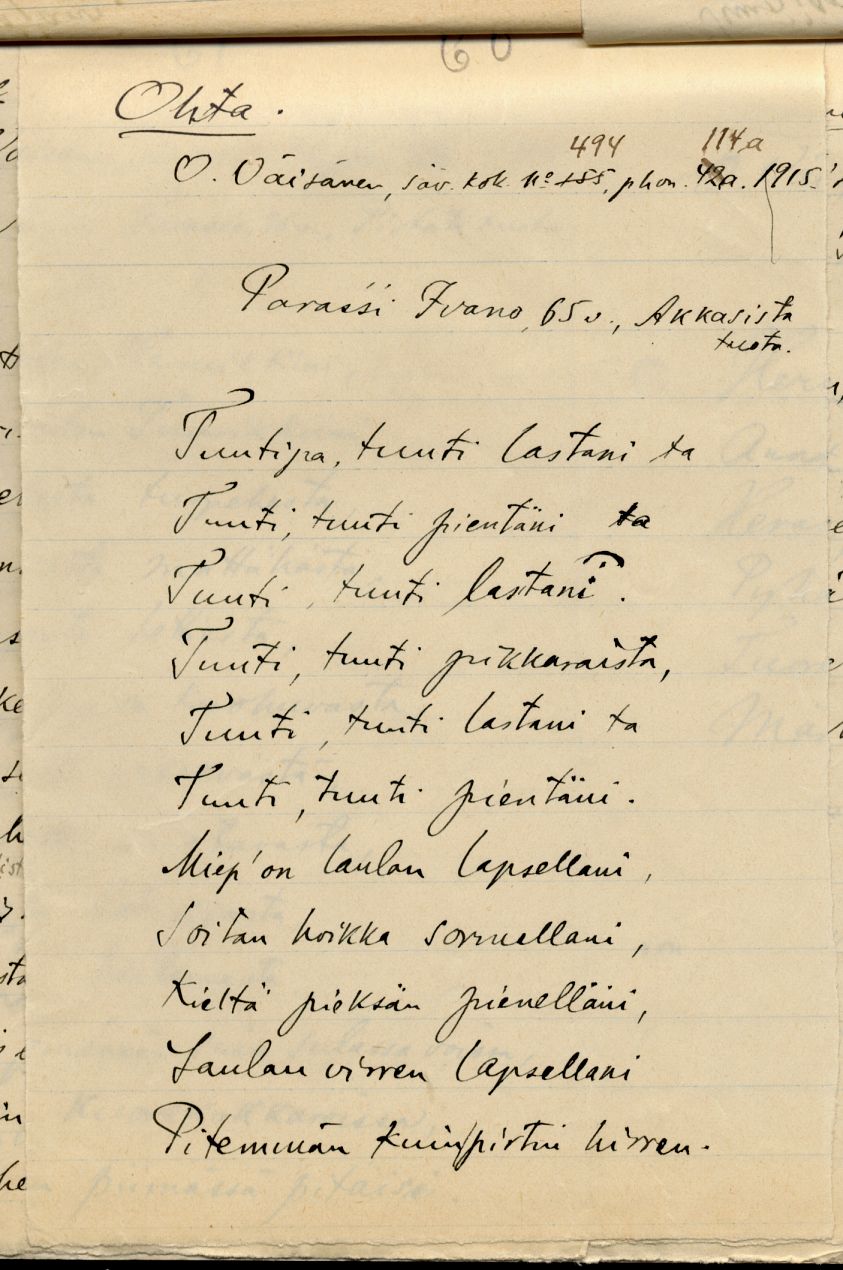 60
Ohta.
494 114,a
O. Väisänen, säv. kok. No 155, phon. 42a. 1915.
Parassi Ivano, 65 v., Akkasista
tuota.
Tuutipa, tuuti lastani ta
Tuuti, tuuti pientäni ta
Tuuti, tuuti lastani.
Tuuti, tuuti pikkaraista,
Tuuti, tuuti lastani ta
Tuuti, tuuti pientäni.
Miep' on laulan lapsellani,
Soitan hoikka sormellani,
Kieltä pieksän pienelläni,
Laulan virren lapsellani
Pitemmän kuin pirtin hirren.